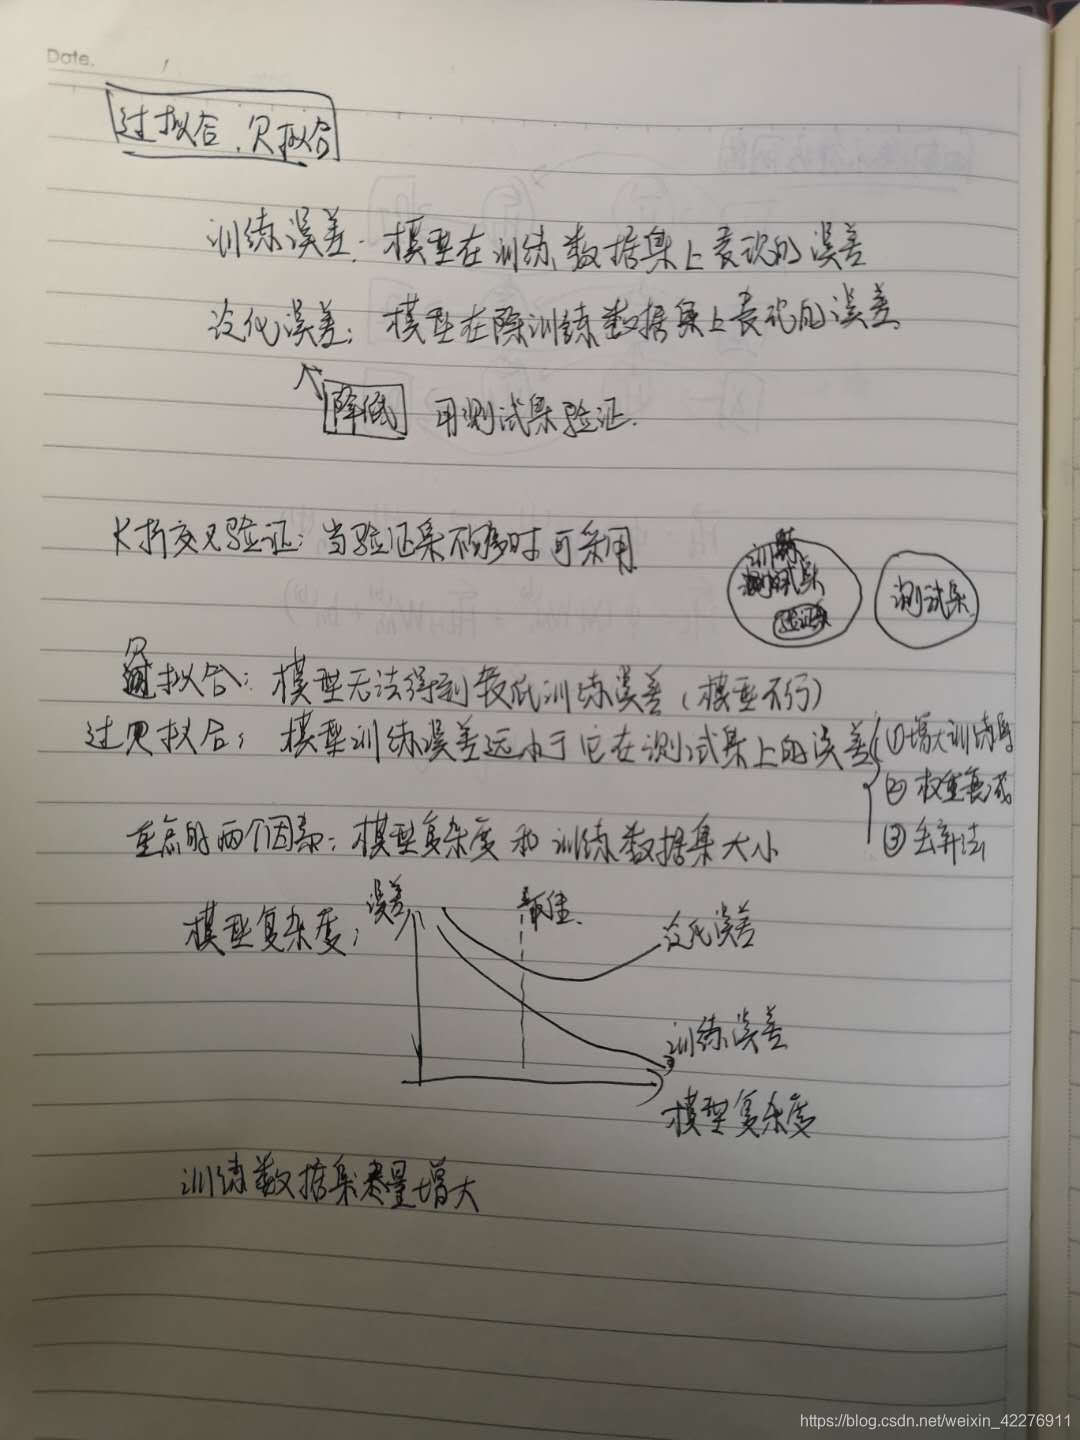 Date.
过拟合、欠拟合
训练误差:模型在训练数据集上表现的误差
泛化误差:模型在除训练数据集上表现的误差
降低 用测试集验证.
K折交叉验证:当验证集不够多时可采用
训练
测试集
验证集
测试集
欠拟合:模型无法得到较低训练误差(模型不行)
过欠拟合:模型训练误差远小于它在测试集上的误差
①增大训练集
②权重衰减
③丢弃法
重点的两个因素:模型复杂度和训练数据集大小
模型复杂度:
误差
最佳.
泛化误差
训练误差
模型复杂度
训练数据集尽量增大
https://blog.csdn.net/weixin_42276911